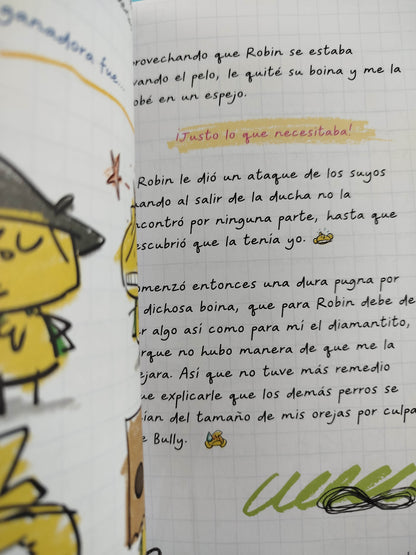 ganadora fue...
rovechando que Robin se estaba
vando el pelo, le quité su boina y me la
obé en un espejo.
¡Justo lo que necesitaba!
Robin le dió un ataque de los suyos
ando al salir de la ducha no la
ncontró por ninguna parte, hasta que
scubrió que la tenía yo.
menzó entonces una dura pugna por
dichosa boina, que para Robin debe de
r algo así como para mí el diamantito,
rque no hubo manera de que me la
jara. Así que no tuve más remedio
ue explicarle que los demás perros se
ían del tamaño de mis orejas por culpa
e Bully.